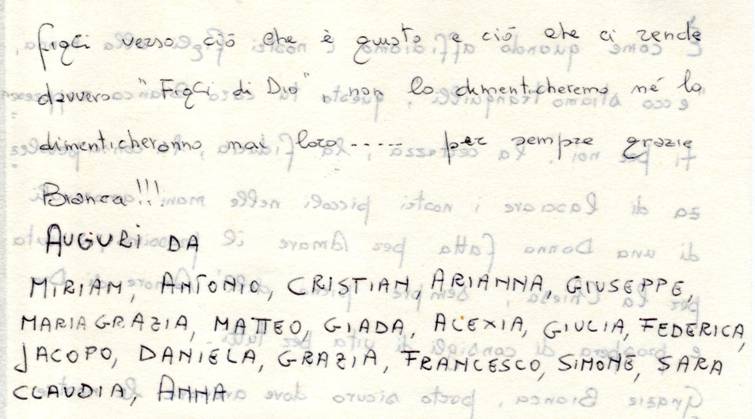 figli verso ciò che è giusto e ciò che ci rende
davvero "Figli di Dio" non lo dimenticheremo né lo
dimenticheranno mai loro..... per sempre grazie
Bianca!!!
AUGURI DA
MIRIAM, ANTONIO, CRISTIAN, ARIANNA, GIUSEPPE,
MARIA GRAZIA, MATTEO, GIADA, ALEXIA, GIULIA, FEDERICA,
JACOPO, DANIELA, GRAZIA, FRANCESCO, SIMONE, SARA
CLAUDIA, ANNA